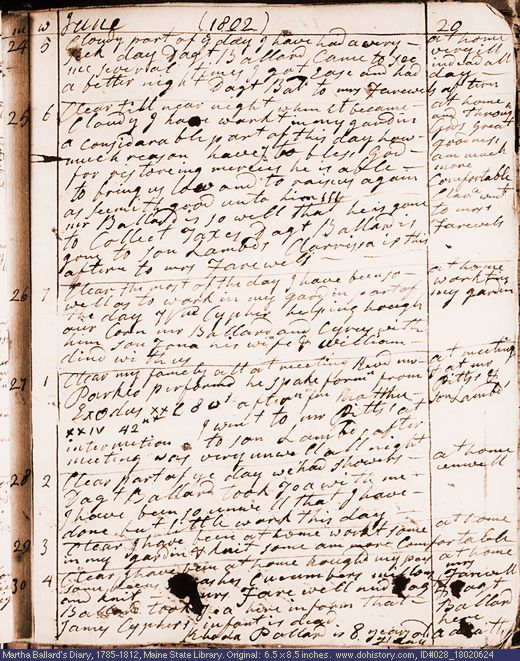 m w June (1802) 20
24 5 Clowdy part of ye day I have had a very at home
sick day Dagt Ballard Came to see very ill
me several times I got Ease and had indeed all
a better night Dagt Bal to mrs Farewels day
aftern
25 6 Clear till near night when it became at home
Clowdy I have workt in my gardin and throug
a considarable part of this day how Gods great
much reason have I to bless God goodness
for restoreing mercies he is able am much
to bring us low and to raise us again more
as seemith good unto him Comfortable
mr Ballard is so well that he is gone Clar went
to Collect Taxes Dagt Ballard is to mrs
gone to son Lambds Clarrissa is this Farewels
aftern to mrs Farewels
26 7 Clear the most of the day I have been so at home
well as to work in my gardin part of workt in
the day Cypher helping hough my gardin
our Corn mr Ballard and Cyrus with
him son Jona her wife & William
dind with us
27 1 Clear my famely all at meetin Revd mr at meeting
Parker performd he spake forenn from at mr
Exodus xx C 8 vs aftern from Matthu Pitts &
xxiv 42 nd I went to mr Pittss at son Lambds
intermition to son Lambds after
meeting was very unwell all night
28 2 Clear part of ye day we had showers at home
Dagt Ballard took Tea with me unwell
I have been so unwell that I have
done but little work this day
29 3 Clear I have been at home workt some at home
in my gardin & knit some am more Comfortable
30 4 Clear I have been at home houghd my at home
Cucumbers mrs Farewell
and knit mrs Farewell and Dagt & Dagt
Ballard took Tea here inform that Ballard
James Cyphers infant is dead here
Rhoda Pollard is 8 years old a death
Martha Ballard's Diary, 1785-1812, Maine State Library. Original: 6.5 x 8.5 inches. www.dohistory.org, ID#028_18020624